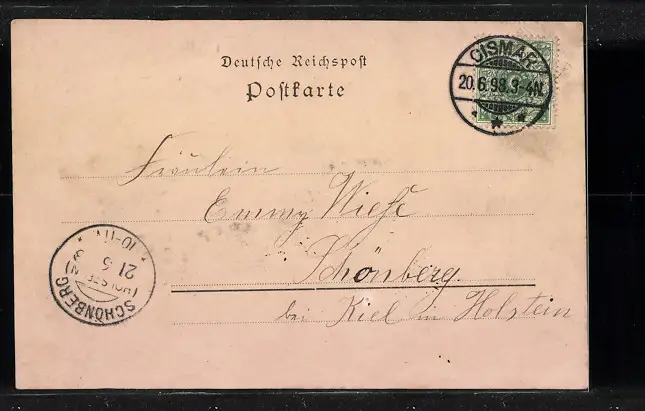 Deutsche Reichspost
Postkarte
CISMAR
20.6.98.3-4N.
Fräulein
Emmy Wiese
Schönberg.
bei Kiel in Holstein
SCHÖNBERG
(HOLSTEIN)
21 6